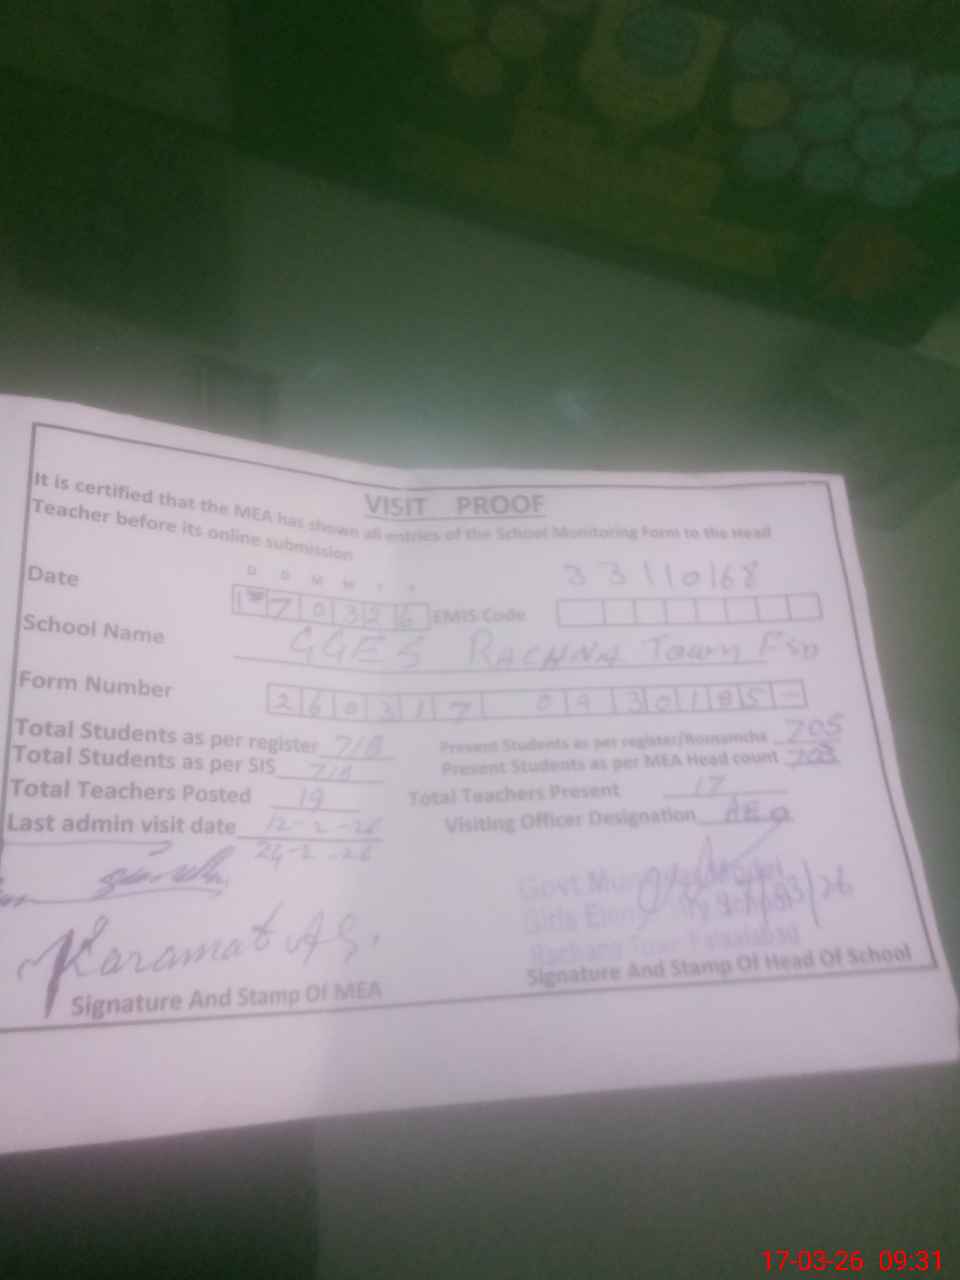 VISIT PROOF
It is certified that the MEA has shown all entries of the School Monitoring Form to the Head
Teacher before its online submission
D D M M Y Y
33110168
Date 170326 EMIS Code
School Name GGES RACHNA Town Fsd
Form Number 260317 09 30185 -
Total Students as per register 718 Present Students as per register/Roznamcha 705
Total Students as per SIS 718 Present Students as per MEA Head count 703
Total Teachers Posted 19 Total Teachers Present 17
Last admin visit date 12-2-26 Visiting Officer Designation AEO
24-2-26
Govt Municipal Model
Girls Elementary School
Rachana Town Faisalabad
17/03/26
Karamat Ali
Signature And Stamp Of MEA Signature And Stamp Of Head Of School
17-03-26 09:31